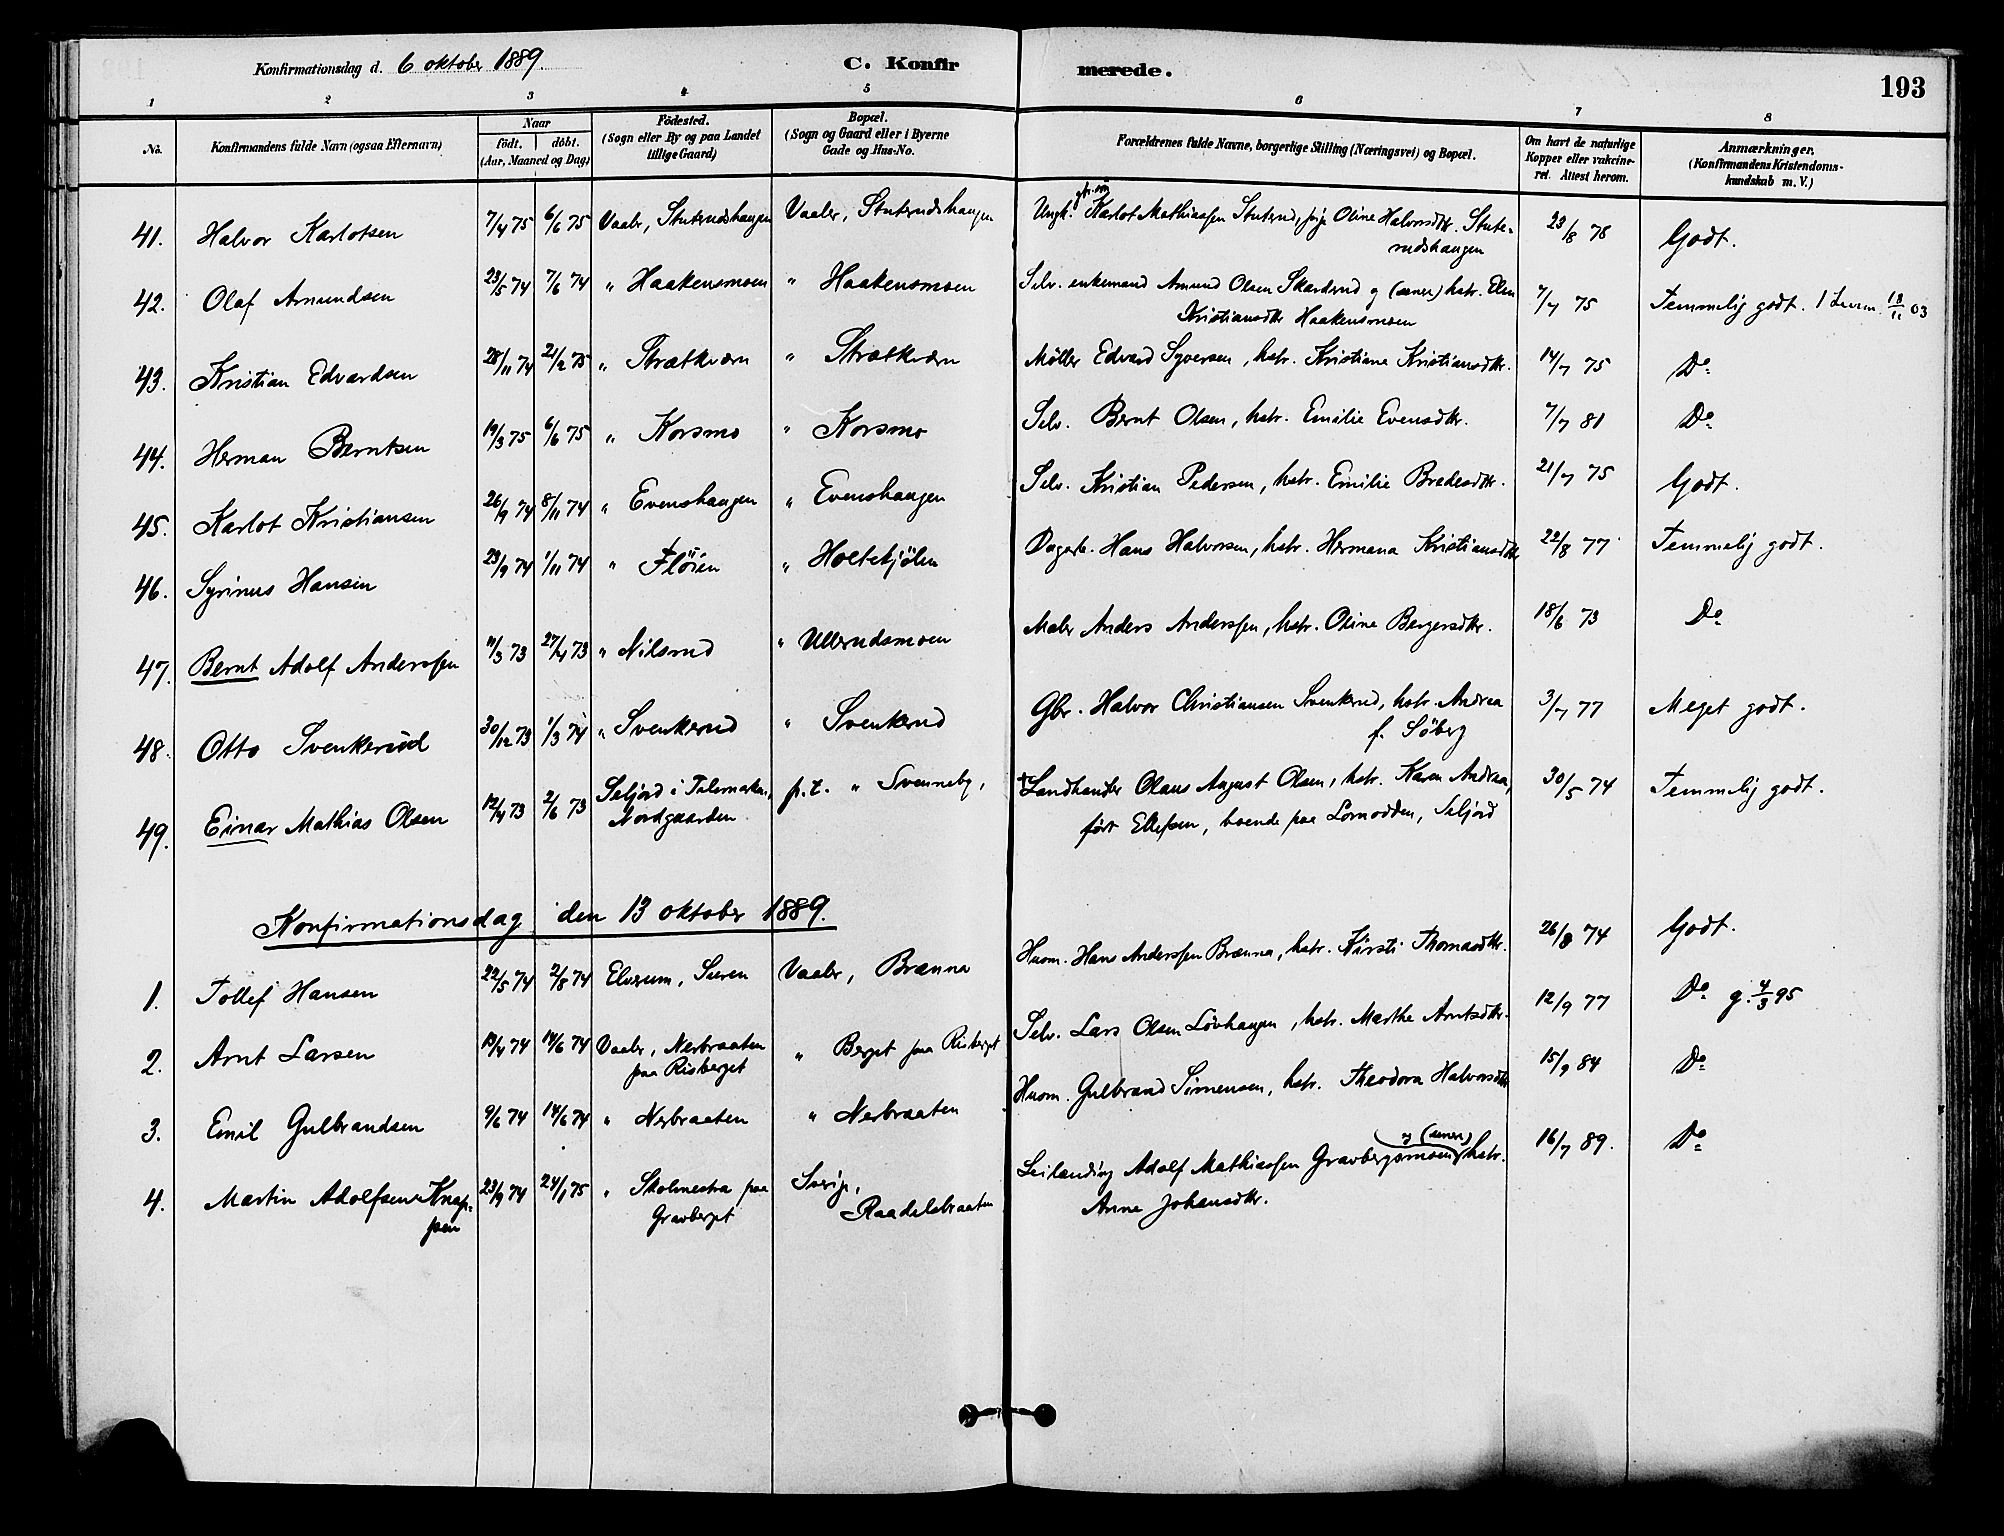 Konfirmationsdag d. 6 oktober 1889.
C. Konfirmerede.
193
1 2 3 4 5 6 7 8
No. Konfirmandens fulde Navn (ogsaa Efternavn) Naar födt. döbt. (Aar, Maaned og Dag) Födested. (Sogn eller By og paa Landet tillige Gaard) Bopæl. (Sogn og Gaard eller i Byerne Gade og Hus-No. Forældrenes fulde Navne, borgerlige Stilling (Næringsvei) og Bopæl. Om havt de naturlige Kopper eller vakcineret. Attest herom. Anmærkninger. (Konfirmandens Kristendomskundskab m. V.)
41. Halvor Karlotsen 7/4 75 6/6 75 Vaaler, Stuterudshaugen Vaaler, Stuterudshaugen Ungk. Karlot Mathiassen Stuterud, pige Oline Halvorsdtr. Stuterudshaugen 23/8 78 Godt.
42. Olaf Amundsen 23/5 74 7/6 74 " Haakensmoen " Haakensmoen Selv. enkemand Amund Olsen Skarderud og (senere) hstr. Elen Kristiansdtr Haakensmoen 7/7 75 Temmelig godt. 18/11 03
43. Kristian Edvardsen 28/11 74 21/2 75 " Strætkværn " Strætkværn Møller Edvard Syversen, hstr. Kristiane Kristiansdtr. 14/7 75 Do
44. Herman Berntsen 19/3 75 6/6 75 " Korsmo " Korsmo Selv. Bernt Olsen, hstr. Emilie Evensdtr. 7/7 81 Do
45. Karlot Kristiansen 26/9 74 8/11 74 " Evenshaugen " Evenshaugen Selv. Kristian Pedersen, hstr. Emilie Bredesdtr. 21/7 75 Godt.
46. Syrinus Hansen 23/9 74 1/11 74 " Fløien " Holtekjølen Dagarb. Hans Halvorsen, hstr. Hermana Kristiansdtr 22/8 77 Temmelig godt.
47. Bernt Adolf Anderssen 11/3 73 27/4 73 " Nilsrud " Ullerudsmoen Maler Anders Anderssen, hstr. Oline Bergersdtr. 18/6 73 Do
48. Otto Svenkerud 30/12 73 1/3 74 " Svenkerud " Svenkerud Gbr. Halvor Christiansen Svenkerud, hstr. Andrea f. Søberg 3/7 77 Meget godt.
49. Einar Mathias Olsen 12/4 73 2/6 73 Seljord i Telemarken, Nordgaarden p.t. " Svenneby, Landhandler Olaus August Olsen, hstr. Karen Andrea, født Ellefsen, boende paa Lomodden, Seljord 30/5 74 Temmelig godt.
Konfirmationsdag den 13 oktober 1889.
1. Tollef Hansen 22/5 74 2/8 74 Elverum, Særen Vaaler, Brænna Husm. Hans Anderssen Brænna, hstr. Kirsti Thomasdtr. 26/8 74 Godt.
2. Arnt Larsen 19/4 74 14/6 74 Vaaler, Nerbraaten paa Risberget " Berget paa Risberget Selv. Lars Olsen Løvhaugen, hstr. Marthe Arntsdtr. 12/9 77 Do g. 4/3 95
3. Emil Gulbrandsen 9/6 74 14/6 74 " Nerbraaten " Nerbraaten Husm. Gulbrand Simensen, hstr. Theodora Halvorsdtr 15/9 84 Do
4. Martin Adolfsen Knappen 23/9 74 24/1 75 " Skolmestra paa Gravberget Sverige, Raadelsbraaten Leilænding Adolf Mathiassen Gravbergsmoen og (senere) hstr. Anne Johansdtr. 16/7 89. Do